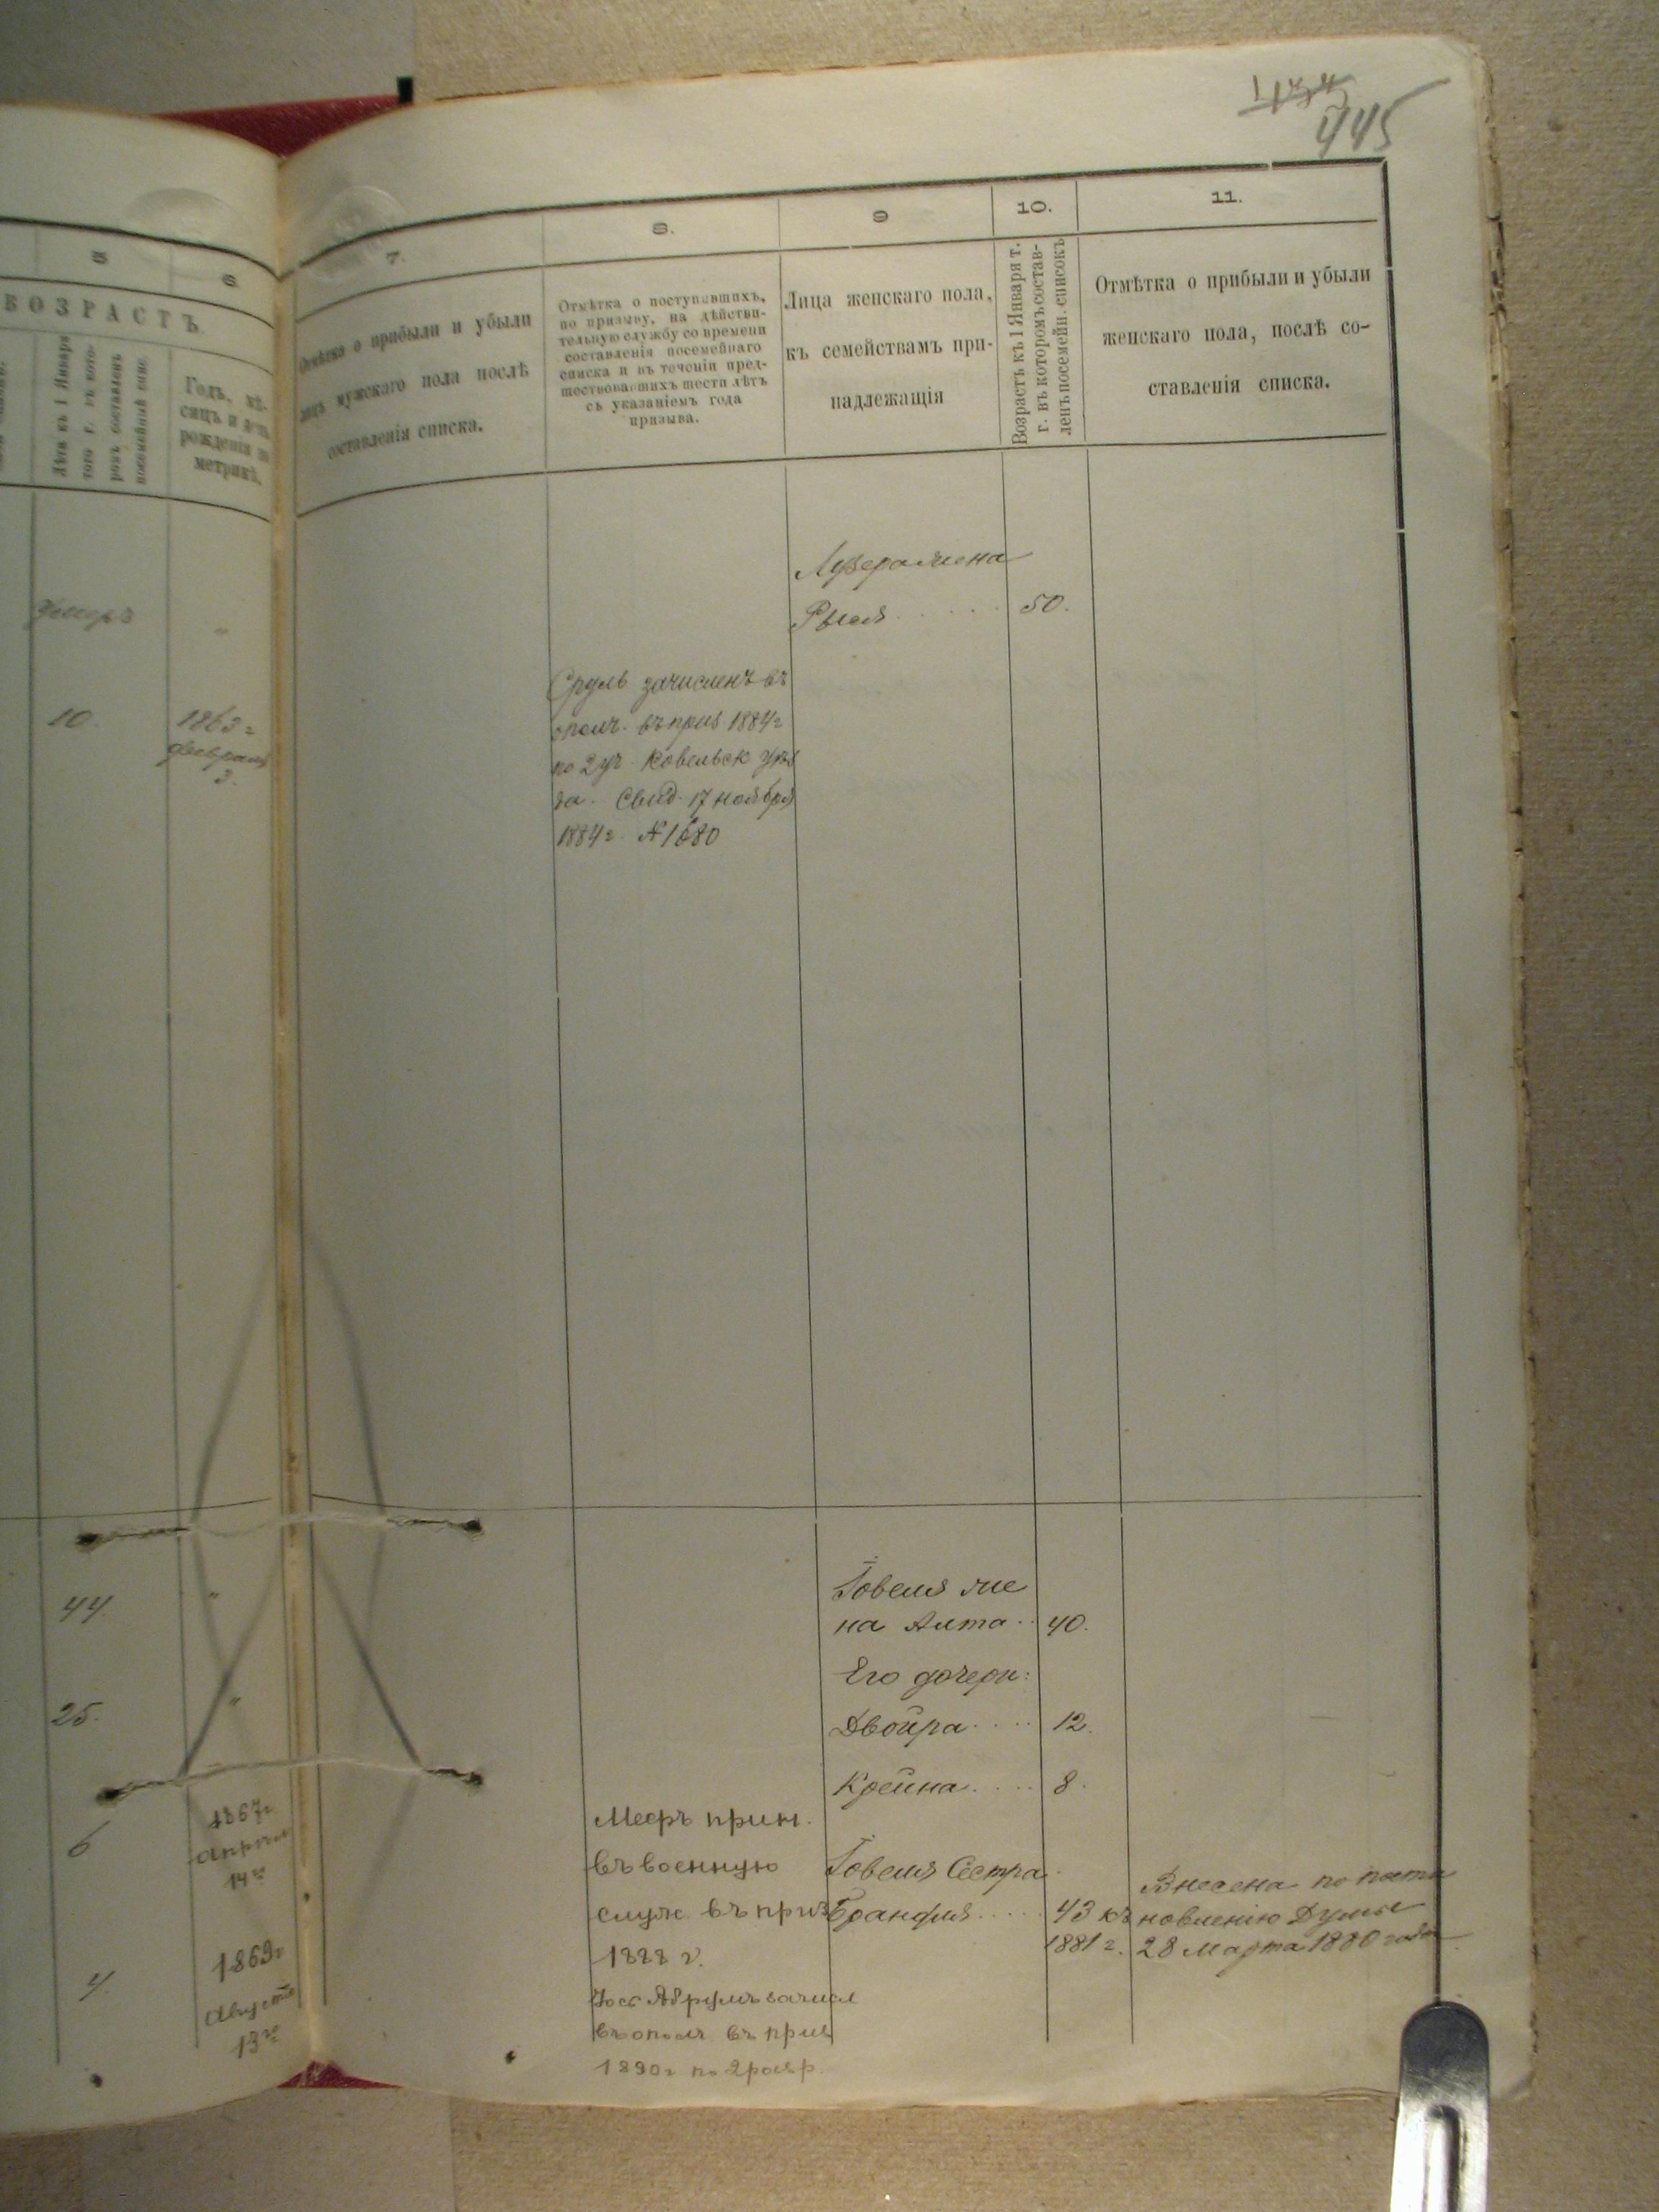 445
5
6
7.
8.
9
10.
11.
ВОЗРАСТЪ.
Лѣта къ 1 Января
того г. въ кото-
ромъ составленъ
посемейный спис.
Годъ, мѣ-
сяцъ и день
рожденія по
метрикѣ.
Отмѣтка о прибыли и убыли
лицъ мужскаго пола послѣ
составленія списка.
Отмѣтка о поступившихъ,
по призыву, на дѣйстви-
тельную службу со времени
составленія посемейнаго
списка и въ теченіи пред-
шествовавшихъ шести лѣтъ
съ указаніемъ года
призыва.
Лица женскаго пола,
къ семействамъ при-
надлежащія
Возрастъ къ 1 Января т.
г. въ которомъ состав-
ленъ посемейн. списокъ
Отмѣтка о прибыли и убыли
женскаго пола, послѣ со-
ставленія списка.
жена
Рыся 50.
Умеръ
10. 1863 г
февраля
3.
Сруль зачисленъ въ
ополч. въ приз 1884 г
по 2 уч. Ковельск уѣз
да. Свид. 17 ноября
1884 г. № 1680
44. "
25. "
6 1867 г
апрѣля
14 го
4. 1869 г
Августа
13 го
Іовеля же
на Алта 40.
Его дочери:
Двойра 12.
Крейна 8.
Мееръ прин.
въ военную
служ. въ приз
1888 г.
Іось Абрумъ зачисл
въ ополч въ приз
1890 г по 2 разр.
Іовеля Сестра
43 къ
1881 г.
Внесена по поста
новленію Думы
28 Марта 1880 года